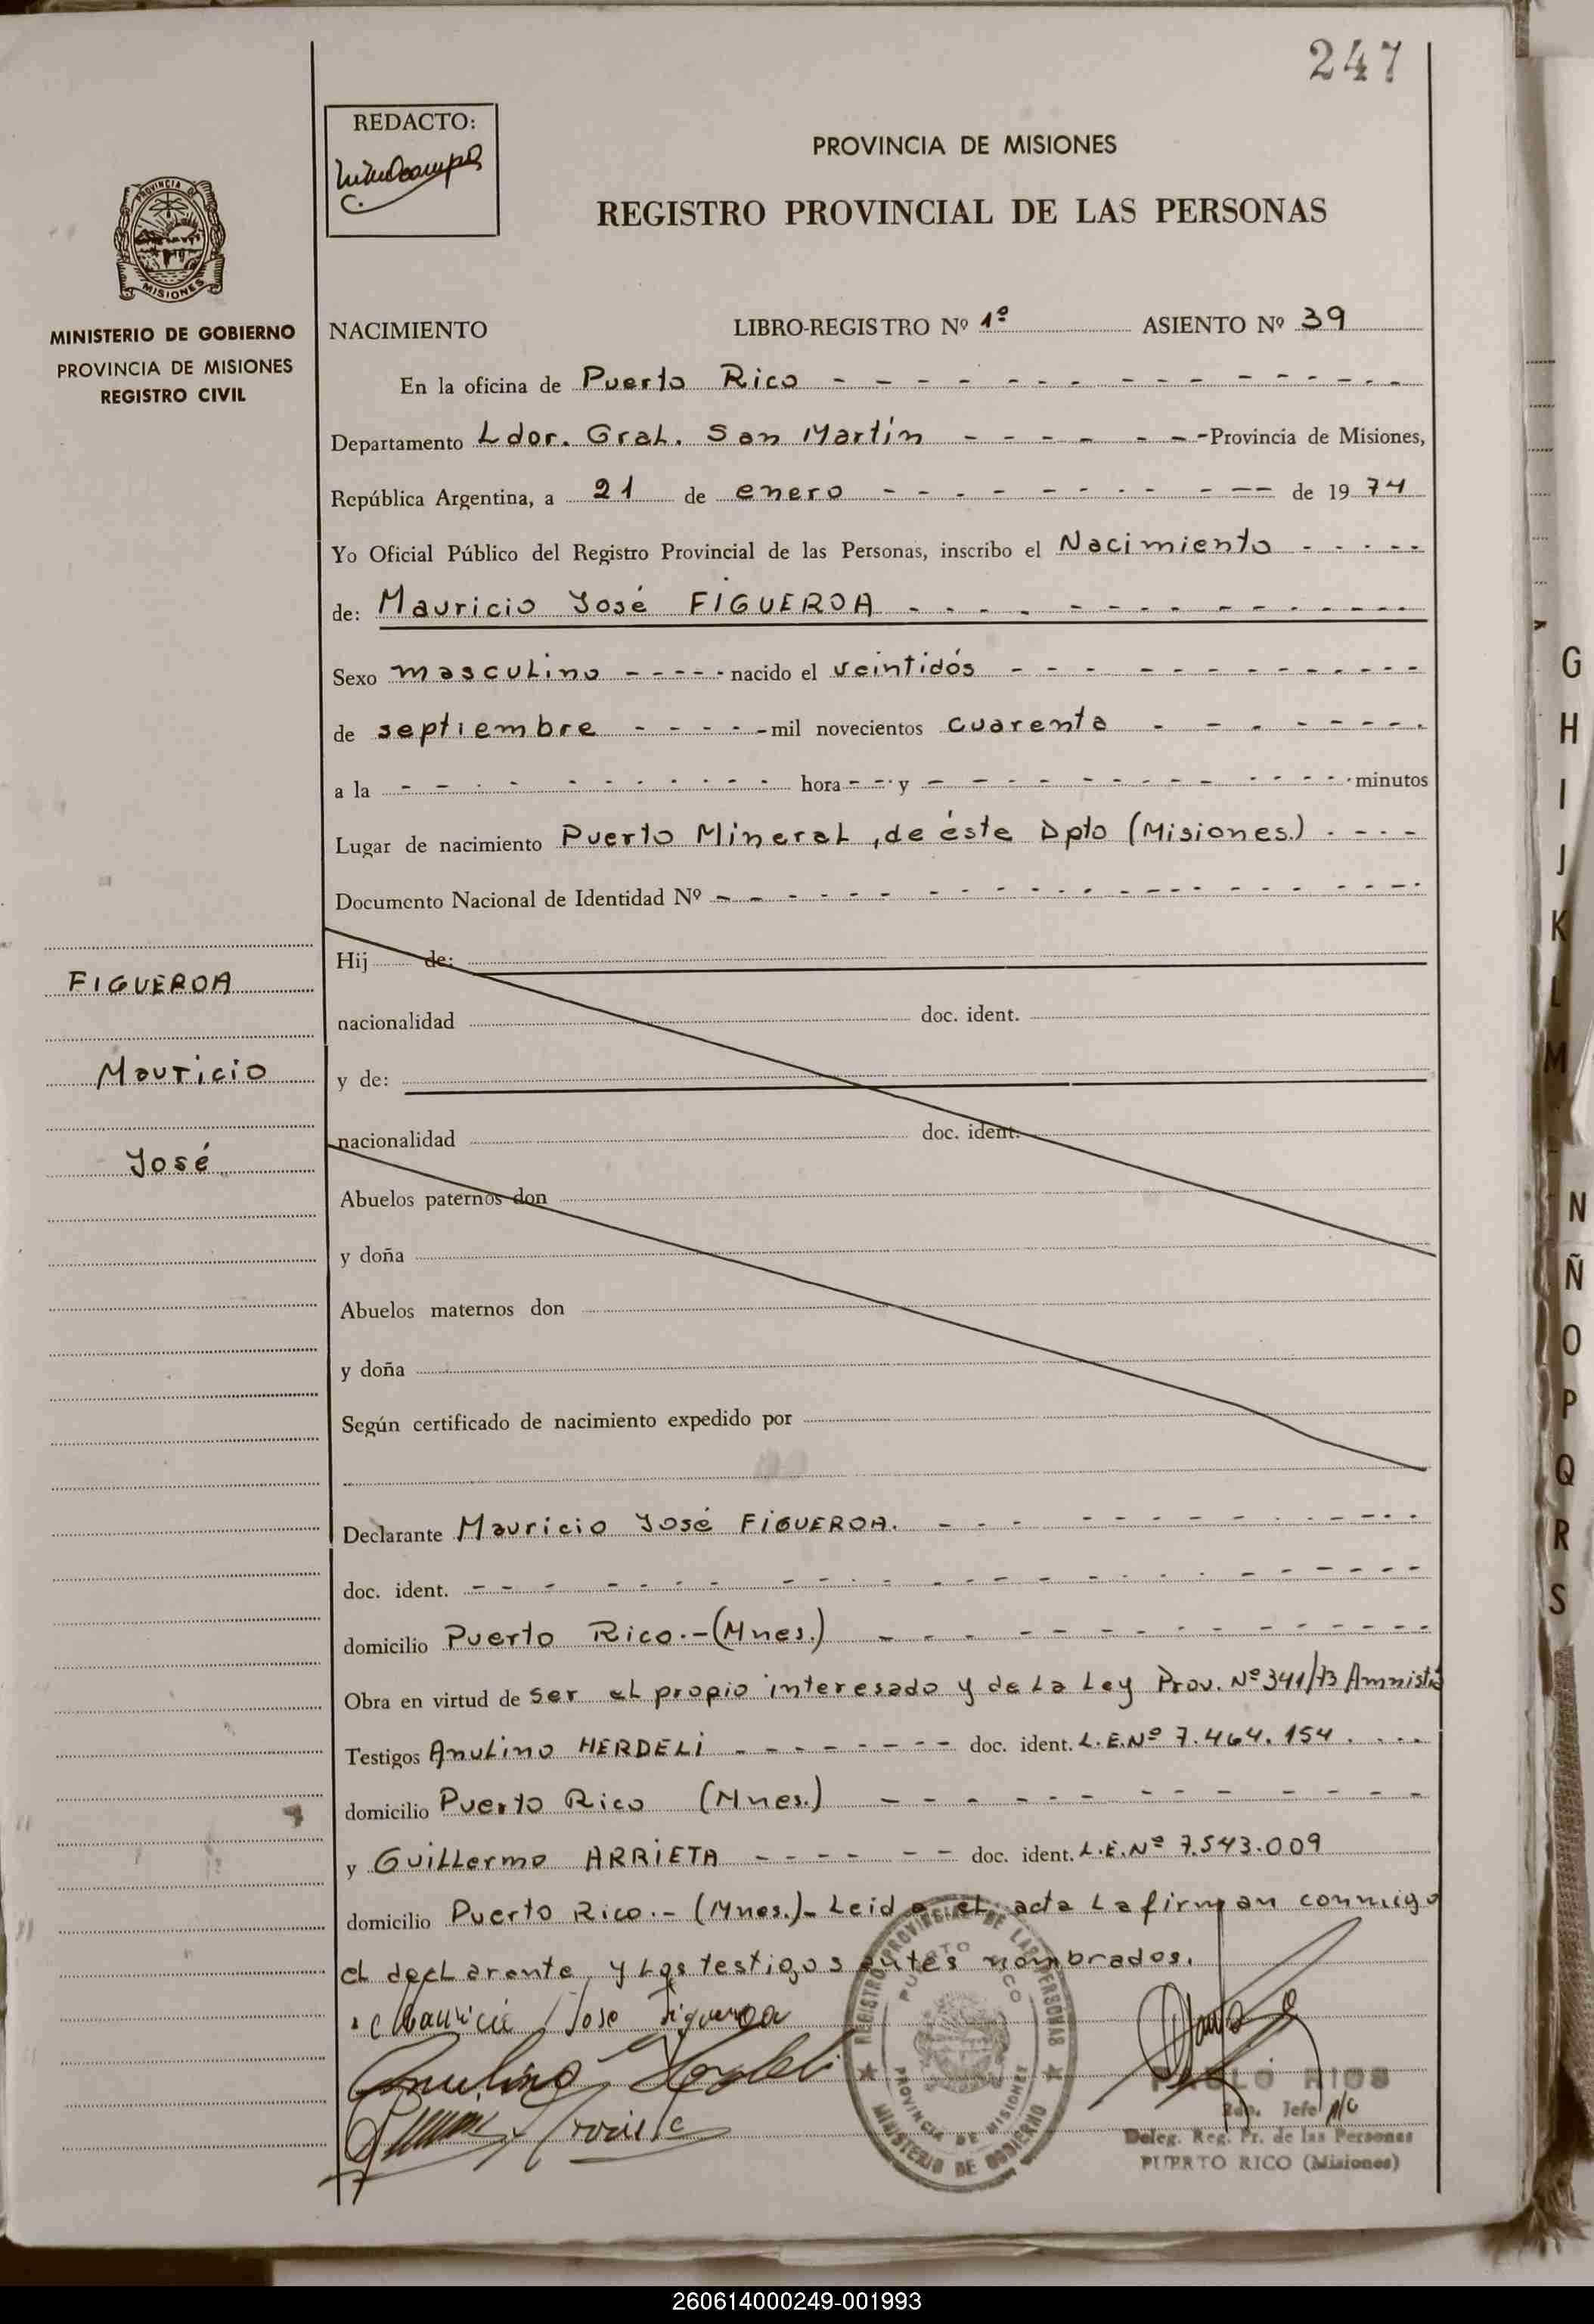 247
REDACTO:
PROVINCIA DE MISIONES
REGISTRO PROVINCIAL DE LAS PERSONAS
PROVINCIA DE
MISIONES
MINISTERIO DE GOBIERNO
PROVINCIA DE MISIONES
REGISTRO CIVIL
NACIMIENTO LIBRO-REGISTRO Nº 1º ASIENTO Nº 39
En la oficina de Puerto Rico - - - - - - - - - - - - - -
Departamento Ldor. Gral. San Martín - - - - - - - Provincia de Misiones,
República Argentina, a 21 de enero - - - - - - - - - - - de 19 74
Yo Oficial Público del Registro Provincial de las Personas, inscribo el Nacimiento - - - - -
de: Mauricio José FIGUEROA - - - - - - - - - - - - -
Sexo masculino - - - - - nacido el veintidós - - - - - - - - - - - -
de septiembre - - - - - mil novecientos cuarenta - - - - - - - -
a la - - - - - - - - - - - hora - - - y - - - - - - - - - - - - - - minutos
Lugar de nacimiento Puerto Mineral, de éste Dpto (Misiones.) - - - -
Documento Nacional de Identidad Nº - - - - - - - - - - - - - - - - - -
Hij de:
nacionalidad doc. ident.
y de:
nacionalidad doc. ident.
Abuelos paternos don
y doña
Abuelos maternos don
y doña
Según certificado de nacimiento expedido por
FIGUEROA
Mauricio
José
Declarante Mauricio José FIGUEROA. - - - - - - - - - - - -
doc. ident. - - - - - - - - - - - - - - - - - - - -
domicilio Puerto Rico.-(Mnes.) - - - - - - - - - - - - -
Obra en virtud de ser el propio interesado y de la Ley Prov. Nº 341/73 Amnistía
Testigos Anulino HERDELI - - - - - - - - doc. ident. L.E.Nº 7.464.154 . - - -
domicilio Puerto Rico (Mnes.) - - - - - - - - - - - -
y Guillermo ARRIETA - - - - - - doc. ident. L.E.Nº 7.543.009
domicilio Puerto Rico.- (Mnes.)- Leida el acta la firman conmigo
el declarante y los testigos antes nombrados.
Mauricio Jose Figueroa
Anulino Herdeli
Arrieta
REGISTRO PROVINCIAL DE LAS PERSONAS
PUERTO RICO
PROVINCIA DE MISIONES
MINISTERIO DE GOBIERNO
PABLO RIOS
2do. Jefe A/C
Deleg. Reg. Pr. de las Personas
PUERTO RICO (Misiones)
G
H
I
J
K
L
M
N
Ñ
O
P
Q
R
S
260614000249-001993